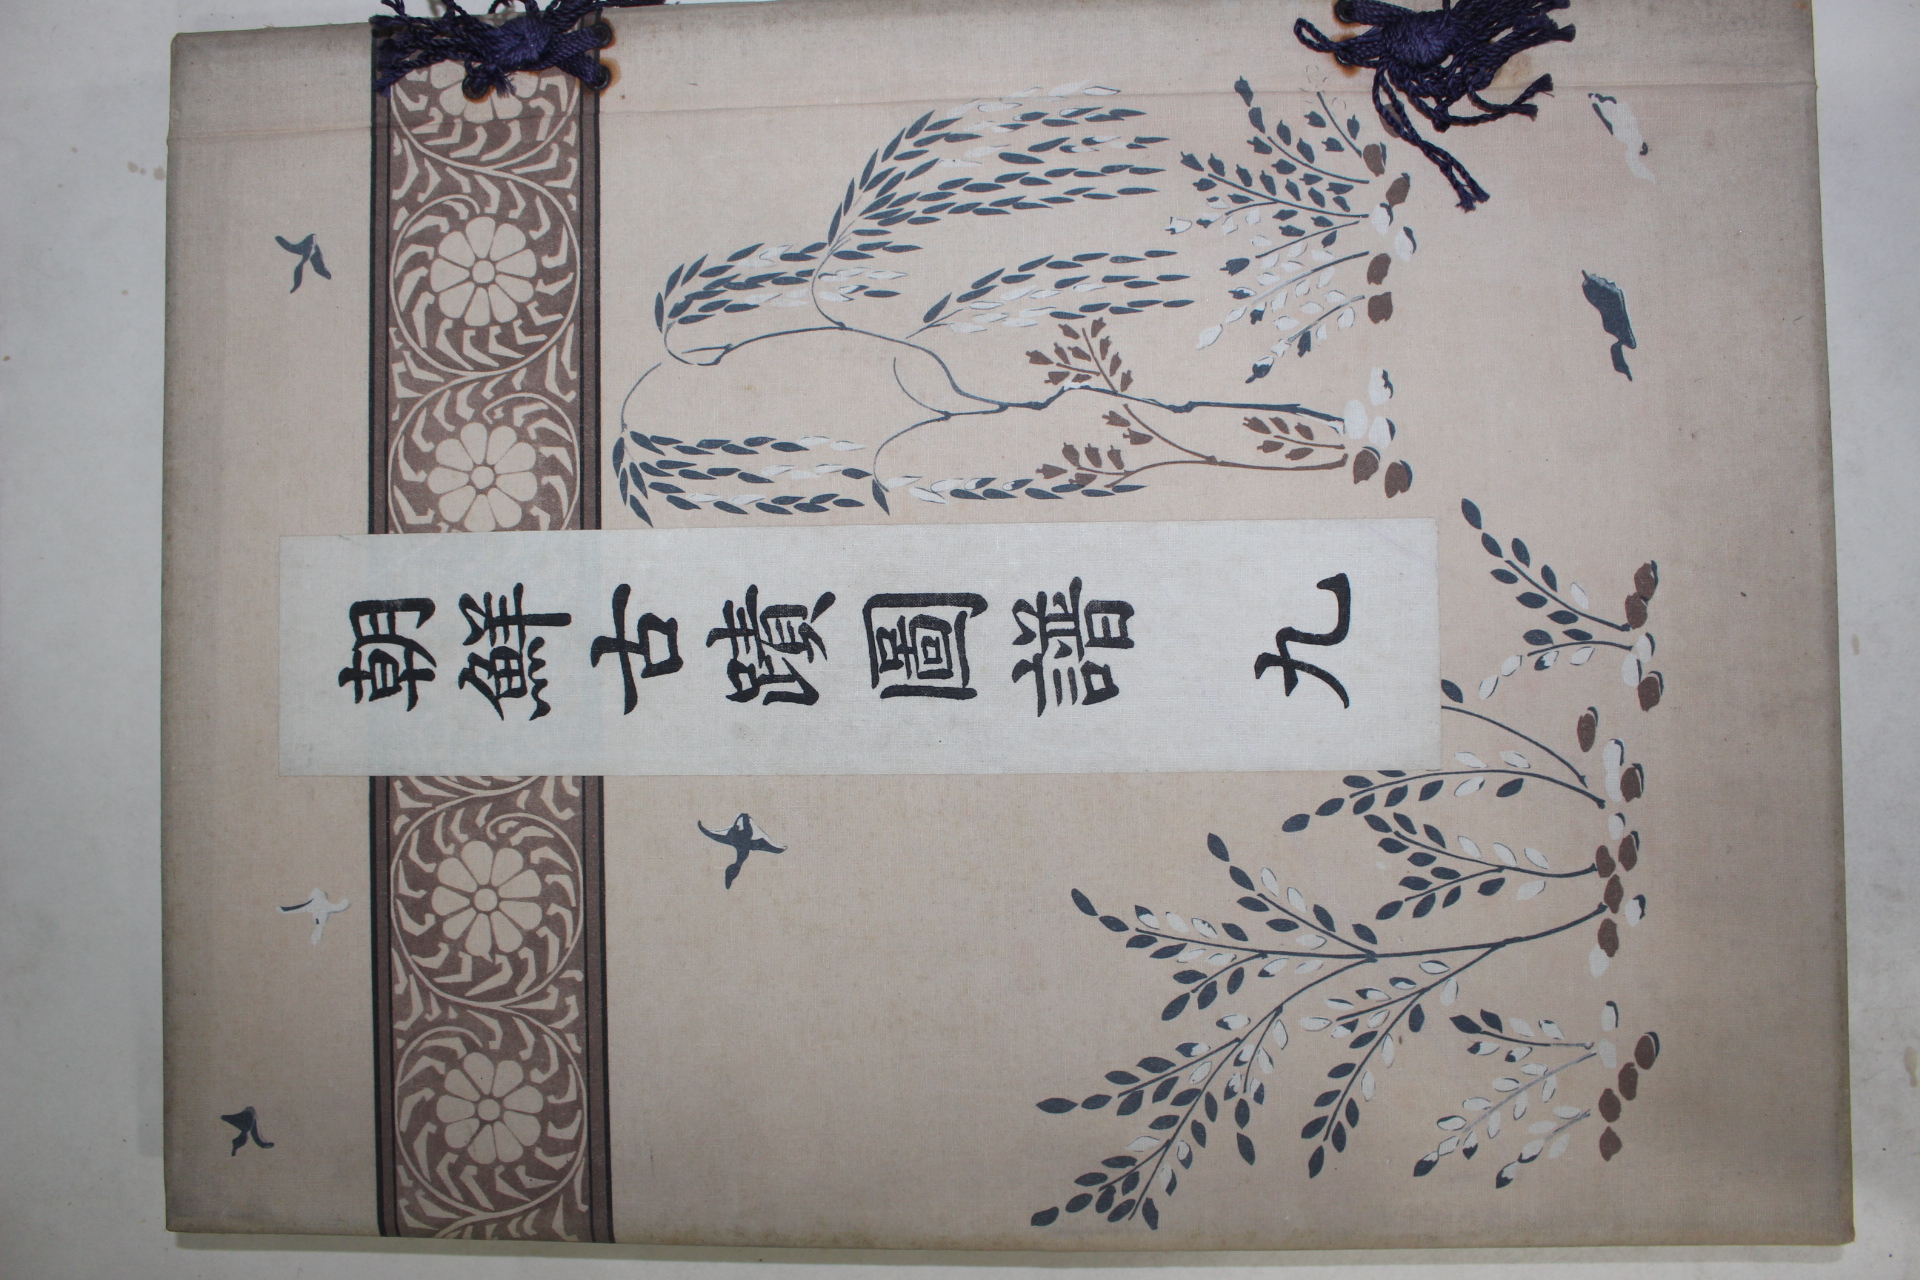 朝鮮古蹟圖譜 九